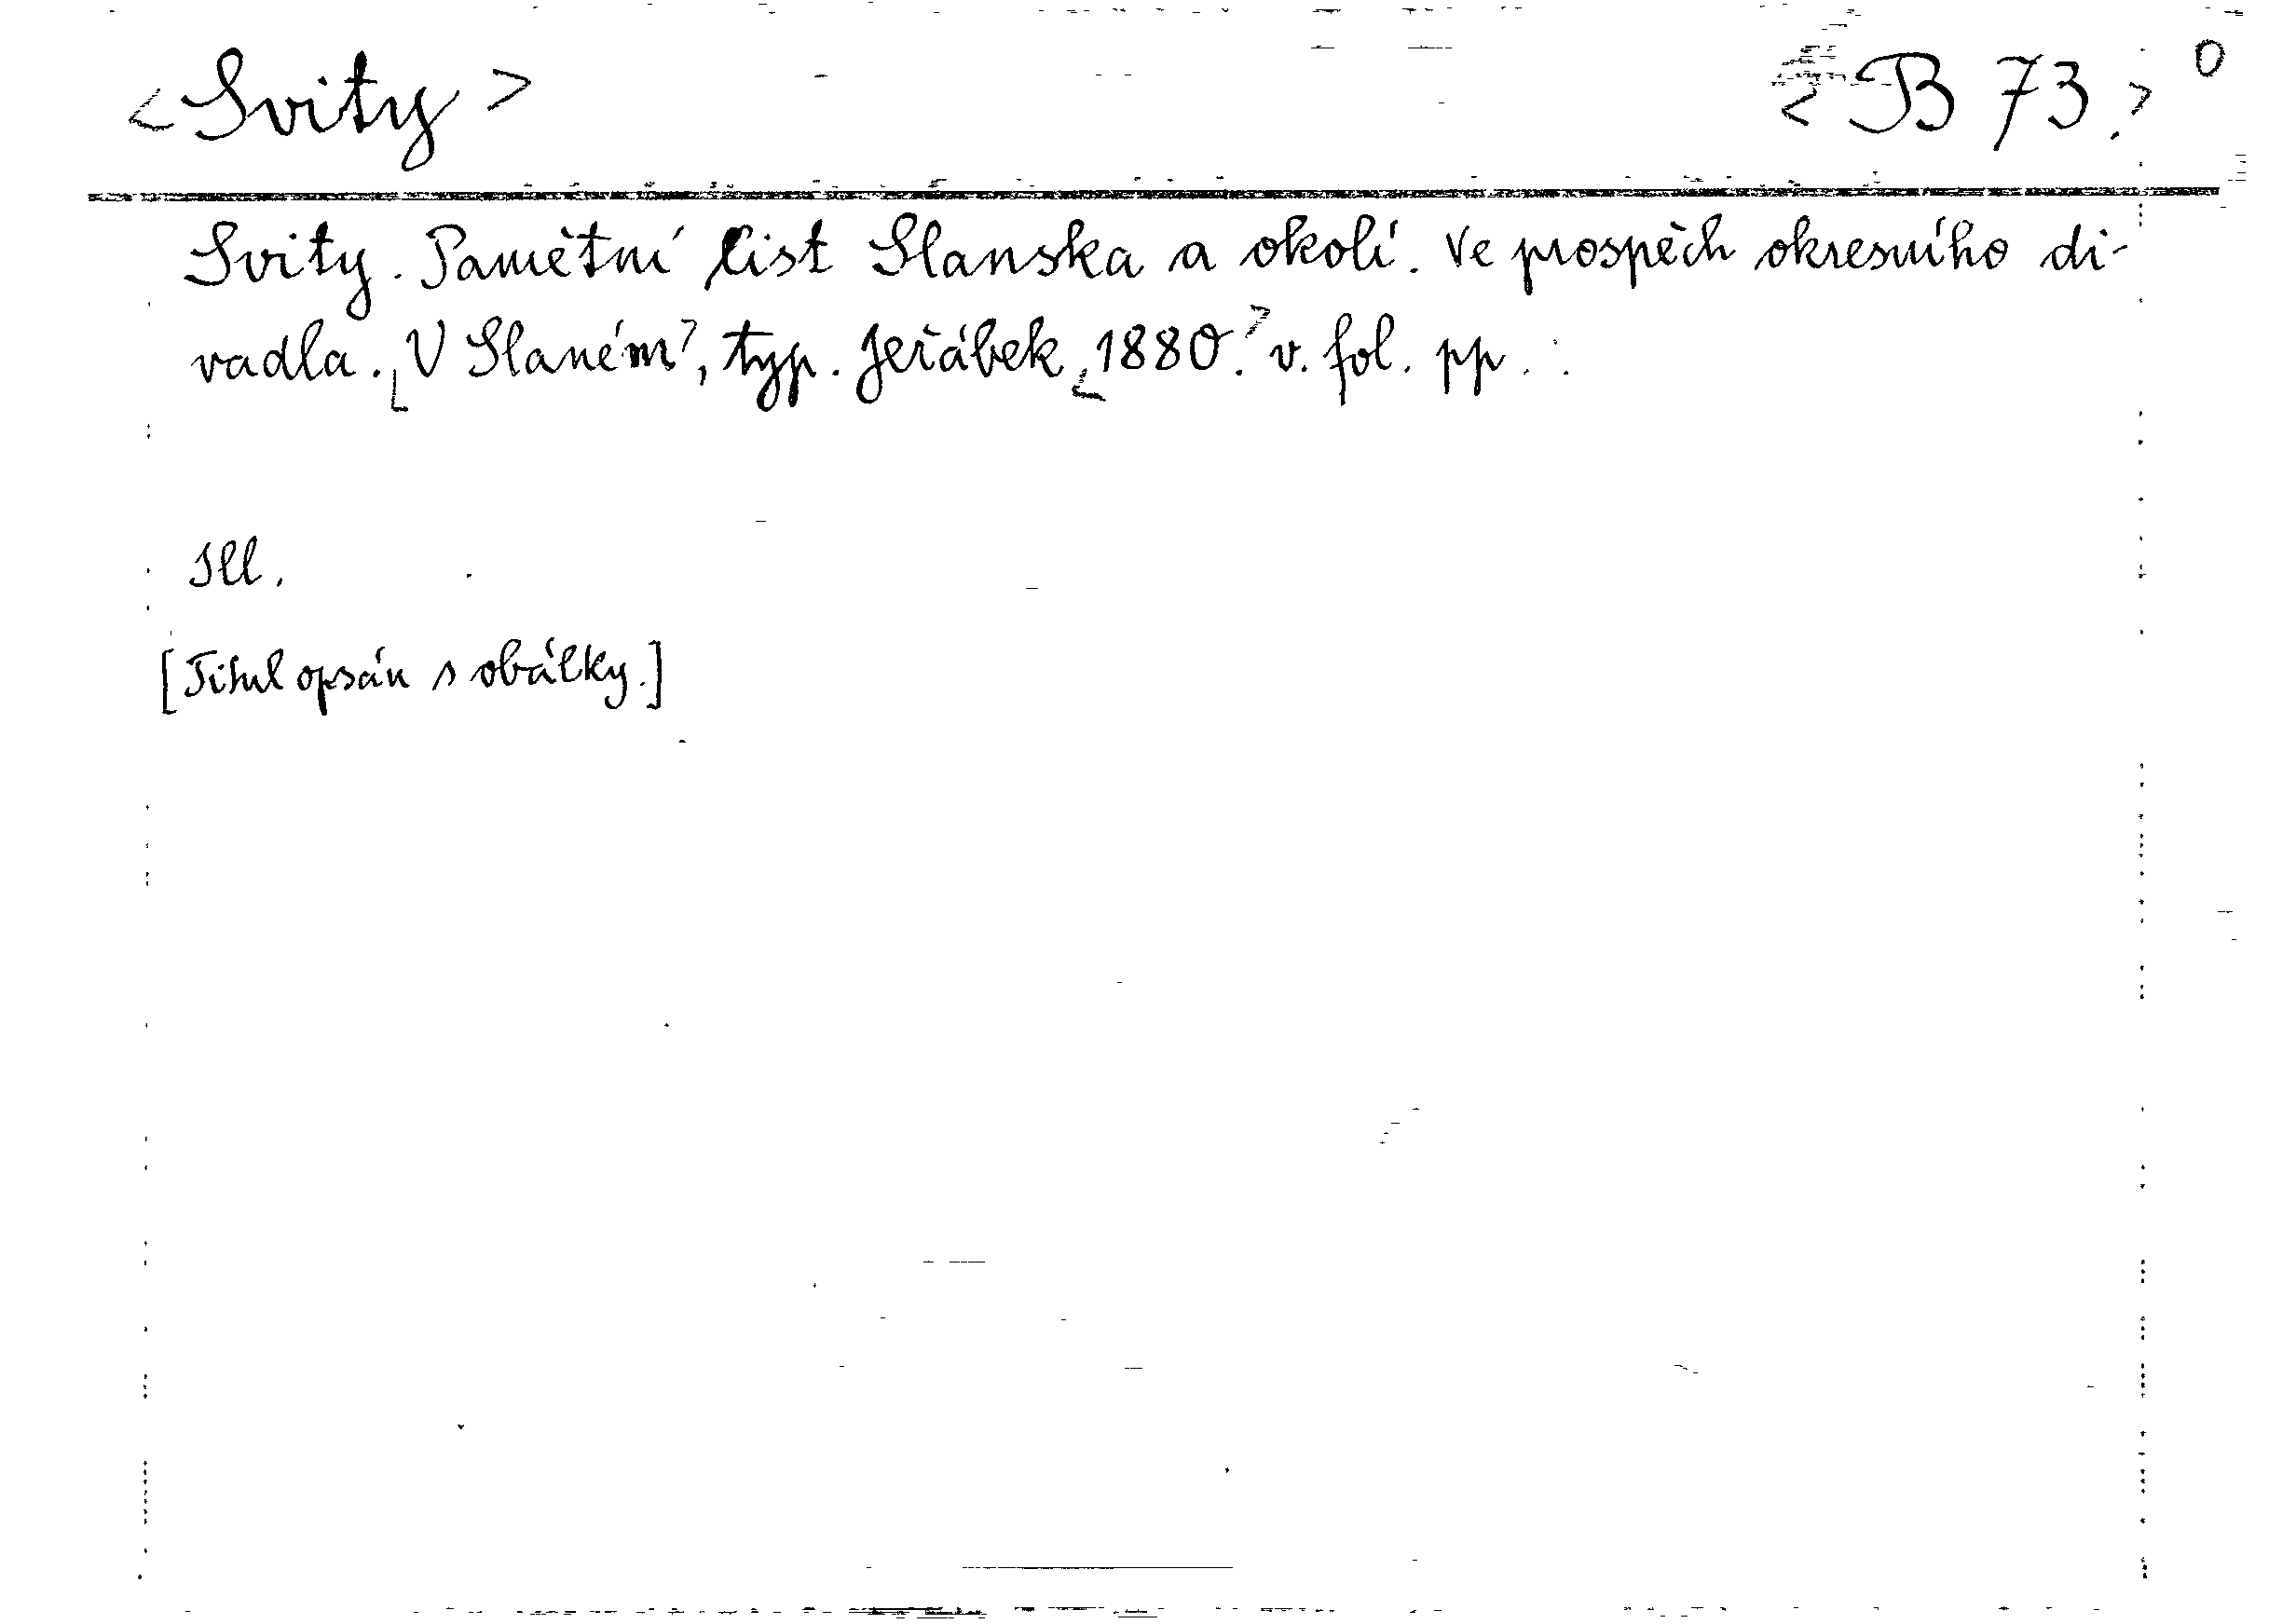 <Svity> <B 73.> 0
Svity. Pamětní list Slanska a okolí. Ve prospěch okresního di-
vadla. [V Slaném], typ. Jeřábek [1880.] v. fol. pp.
Ill.
[Titul opsán s obálky.]